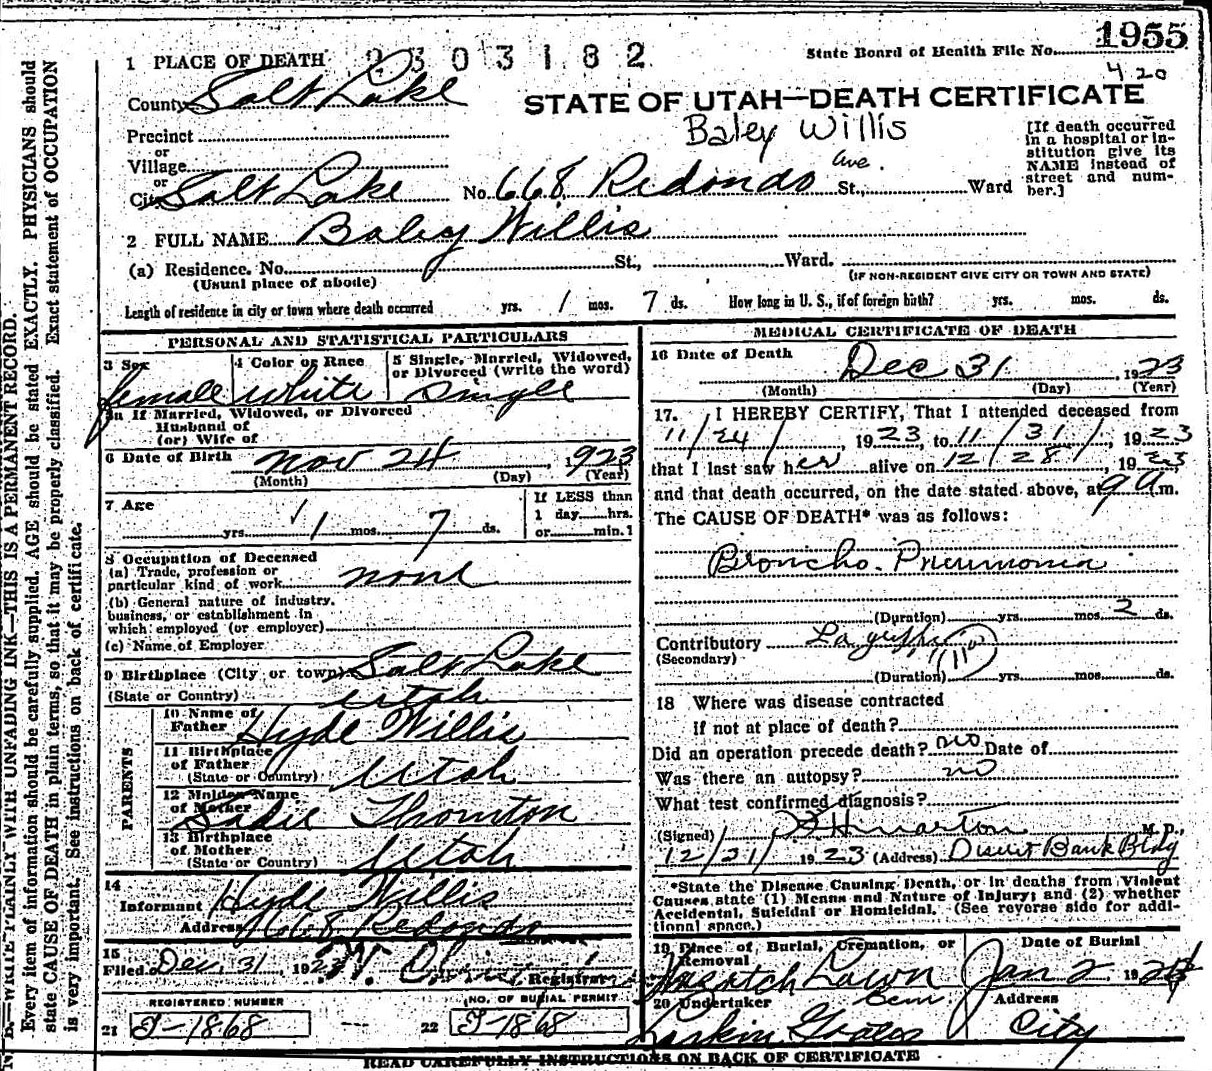 N. B.—WRITE PLAINLY WITH UNFADING INK—THIS IS A PERMANENT RECORD.
Every item of information should be carefully supplied. AGE should be stated EXACTLY. PHYSICIANS should
state CAUSE OF DEATH in plain terms, so that it may be properly classified. Exact statement of OCCUPATION
is very important. See instructions on back of certificate.
1955
State Board of Health File No.
2303182
420
1 PLACE OF DEATH
County Salt Lake
STATE OF UTAH—DEATH CERTIFICATE
Baley Willis
Precinct
or
Village
or
City Salt Lake No. 668 Redondo Ave. St., Ward
[If death occurred
in a hospital or in-
stitution give its
NAME instead of
street and num-
ber.]
2 FULL NAME Baley Willis
(a) Residence. No. St., Ward.
(Usual place of abode)
(IF NON-RESIDENT GIVE CITY OR TOWN AND STATE)
Length of residence in city or town where death occurred yrs. 1 mos. 7 ds. How long in U. S., if of foreign birth? yrs. mos. ds.
PERSONAL AND STATISTICAL PARTICULARS
3 Sex
female
4 Color or Race
white
5 Single, Married, Widowed,
or Divorced (write the word)
single
5a If Married, Widowed, or Divorced
Husband of
(or) Wife of
6 Date of Birth Nov 24, 1923
(Month) (Day) (Year)
7 Age
yrs. 1 mos. 7 ds.
If LESS than
1 day hrs.
or min.1
8 Occupation of Deceased
(a) Trade, profession or
particular kind of work none
(b) General nature of industry.
business, or establishment in
which employed (or employer)
(c) Name of Employer
9 Birthplace (City or town) Salt Lake
(State or Country) Utah
PARENTS
10 Name of
Father Hyde Willis
11 Birthplace
of Father
(State or Country) Utah
12 Maiden Name
of Mother Sadie Thornton
13 Birthplace
of Mother
(State or Country) Utah
14
Informant Hyde Willis
Address 668 Redondo
15
Filed Dec. 31 1923
Registrar
REGISTERED NUMBER
21 J-1868
NO. OF BURIAL PERMIT
22 J-1868
MEDICAL CERTIFICATE OF DEATH
16 Date of Death Dec 31, 1923
(Month) (Day) (Year)
17. I HEREBY CERTIFY, That I attended deceased from
11/24/, 1923 to 11/31/, 1923
that I last saw her alive on 12/28/, 1923
and that death occurred, on the date stated above, at 9 a.m.
The CAUSE OF DEATH* was as follows:
Broncho. Pneumonia
(Duration) yrs. mos. 2 ds.
Contributory La grippe
(Secondary)
(11b)
(Duration) yrs. mos. ds.
18 Where was disease contracted
if not at place of death?
Did an operation precede death? no Date of
Was there an autopsy? no
What test confirmed diagnosis?
(Signed) M. D.,
12/21/ 1923 (Address) Bank Bldg
*State the Disease Causing Death, or in deaths from Violent
Causes, state (1) Means and Nature of Injury; and (2) whether
Accidental, Suicidal or Homicidal. (See reverse side for addi-
tional space.)
19 Place of Burial, Cremation, or
Removal
Wasatch Lawn Cem.
Date of Burial
Jan 2 1924
20 Undertaker
Larkin
Address
City
READ CAREFULLY INSTRUCTIONS ON BACK OF CERTIFICATE